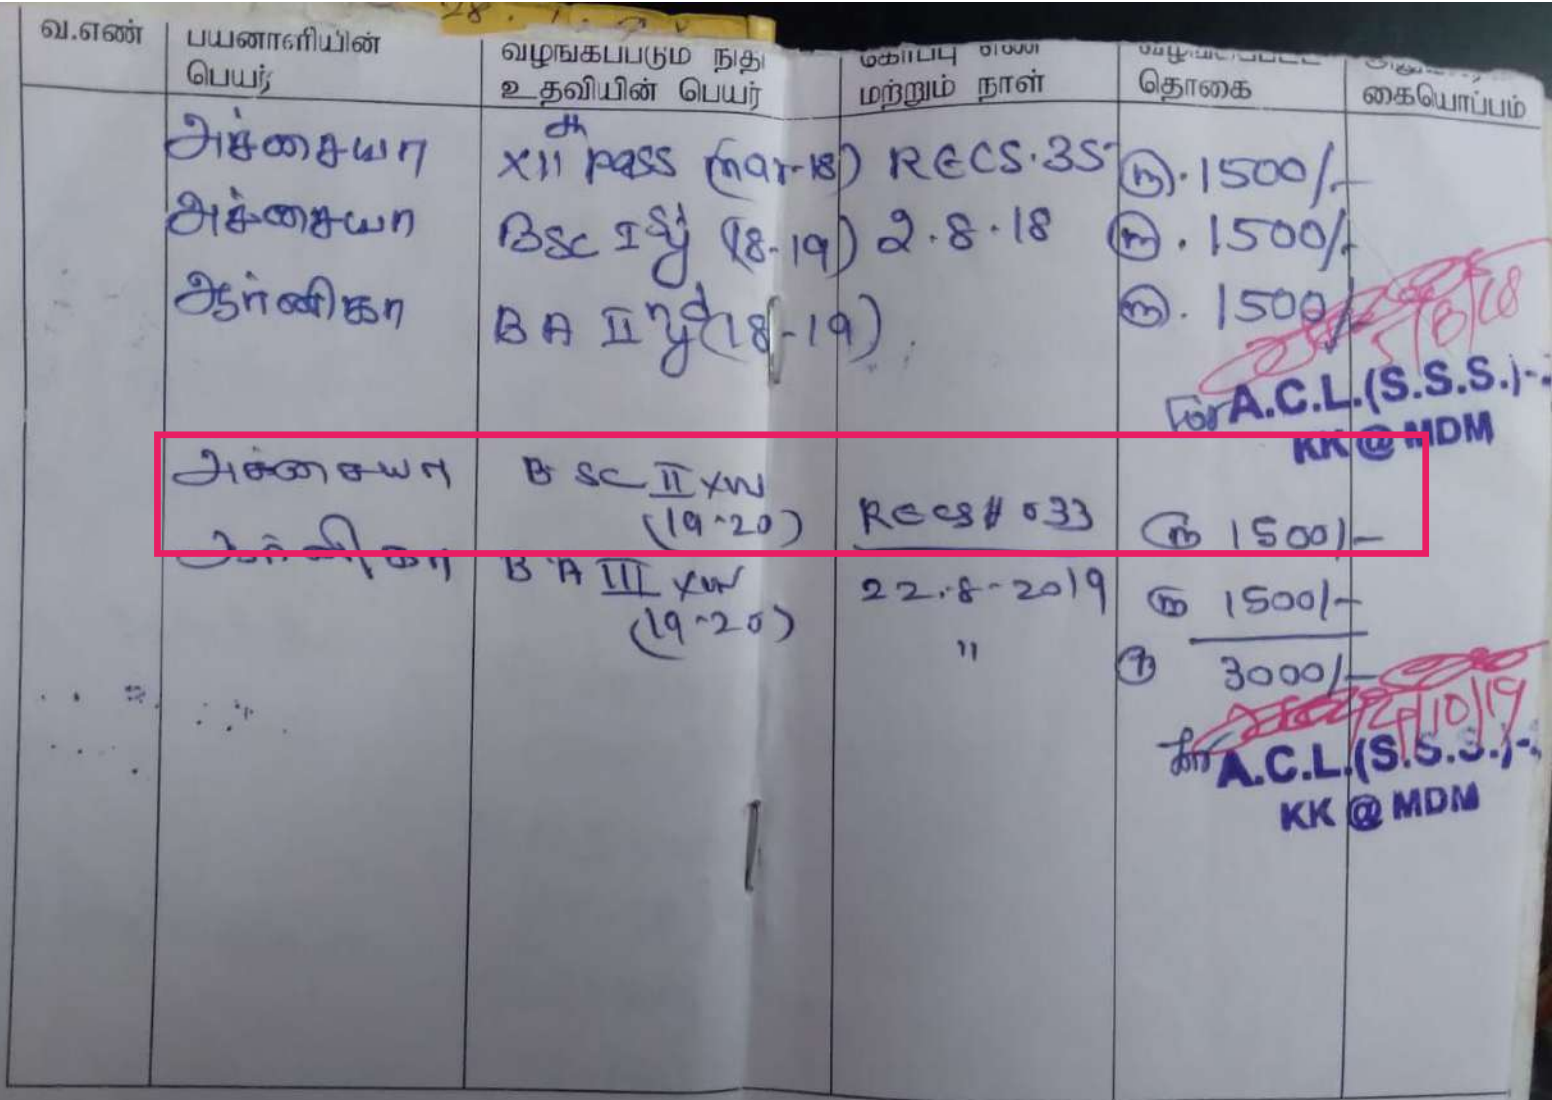 வ.எண் பயனாளியின் பெயர் வழங்கப்படும் நிதி உதவியின் பெயர் கோப்பு எண் மற்றும் நாள் தொகை கையொப்பம்
அச்சையா XII th pass (mar-18) RECS.35 ரூ. 1500/-
அச்சையா BSC I st yr (18-19) 2.8.18 ரூ. 1500/-
ஆர்னிகா BA II nd yr (18-19) ரூ. 1500/-
5/8/18
A.C.L.(S.S.S.)-
KK @ MDM
அச்சையா BSC II yr (19-20) RECS # 033 ரூ 1500/-
ஆர்னிகா BA III yr (19-20) 22.8-2019 ரூ 1500/-
" ரூ 3000/-
/10/19
A.C.L.(S.S.S.)-
KK @ MDM